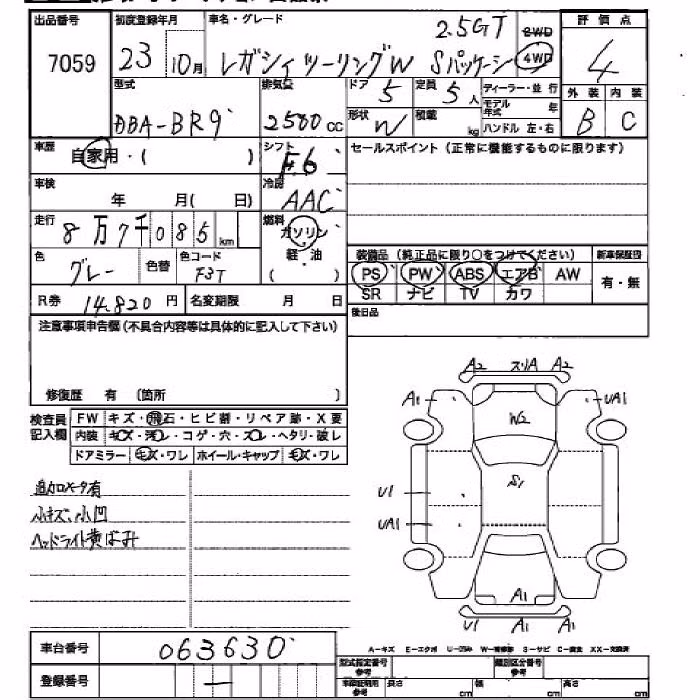 出品番号 初度登録年月 車名・グレード 評価点
7059 23 10月 レガシィツーリングW 2.5GT Sパッケージ 2WD 4WD 4
型式 排気量 ドア 5 定員 5人 ディーラー・並行 外装 内装
DBA-BR9 2500cc 形状 W 積載 kg モデル年式 年 ハンドル 左・右 B C
車歴 自家用・( ) シフト F6 セールスポイント(正常に機能するものに限ります)
車検 年 月( 日) 冷房 AAC
走行 8万7千085km 燃料 ガソリン 軽・油 ( )
装備品(純正品に限り○をつけてください) 新車保証書
色 グレー 色替 色コード F3T PS PW ABS エアB AW 有・無
SR ナビ TV カワ
R券 14,820円 名変期限 月 日
後日品
注意事項申告欄(不具合内容等は具体的に記入して下さい)
修復歴 有 〔箇所 〕
検査員記入欄 FW キズ・飛石・ヒビ割・リペア跡・X要
内装 キズ・汚レ・コゲ・穴・スレ・ヘタリ・破レ
ドアミラー キズ・ワレ ホイール・キャップ キズ・ワレ
追加メータ有
小キズ、小凹
ヘッドライト黄ばみ
A2 スリA A2
A1 UA1
W2
S1
U1
UA1
A1
U1 A1 A1
車台番号 063630
A-キズ E-エクボ U-凹み W-補修跡 S-サビ C-腐食 XX-交換済
登録番号 — 型式指定番号 参考 類別区分番号 参考
長さ cm 幅 cm 高さ cm